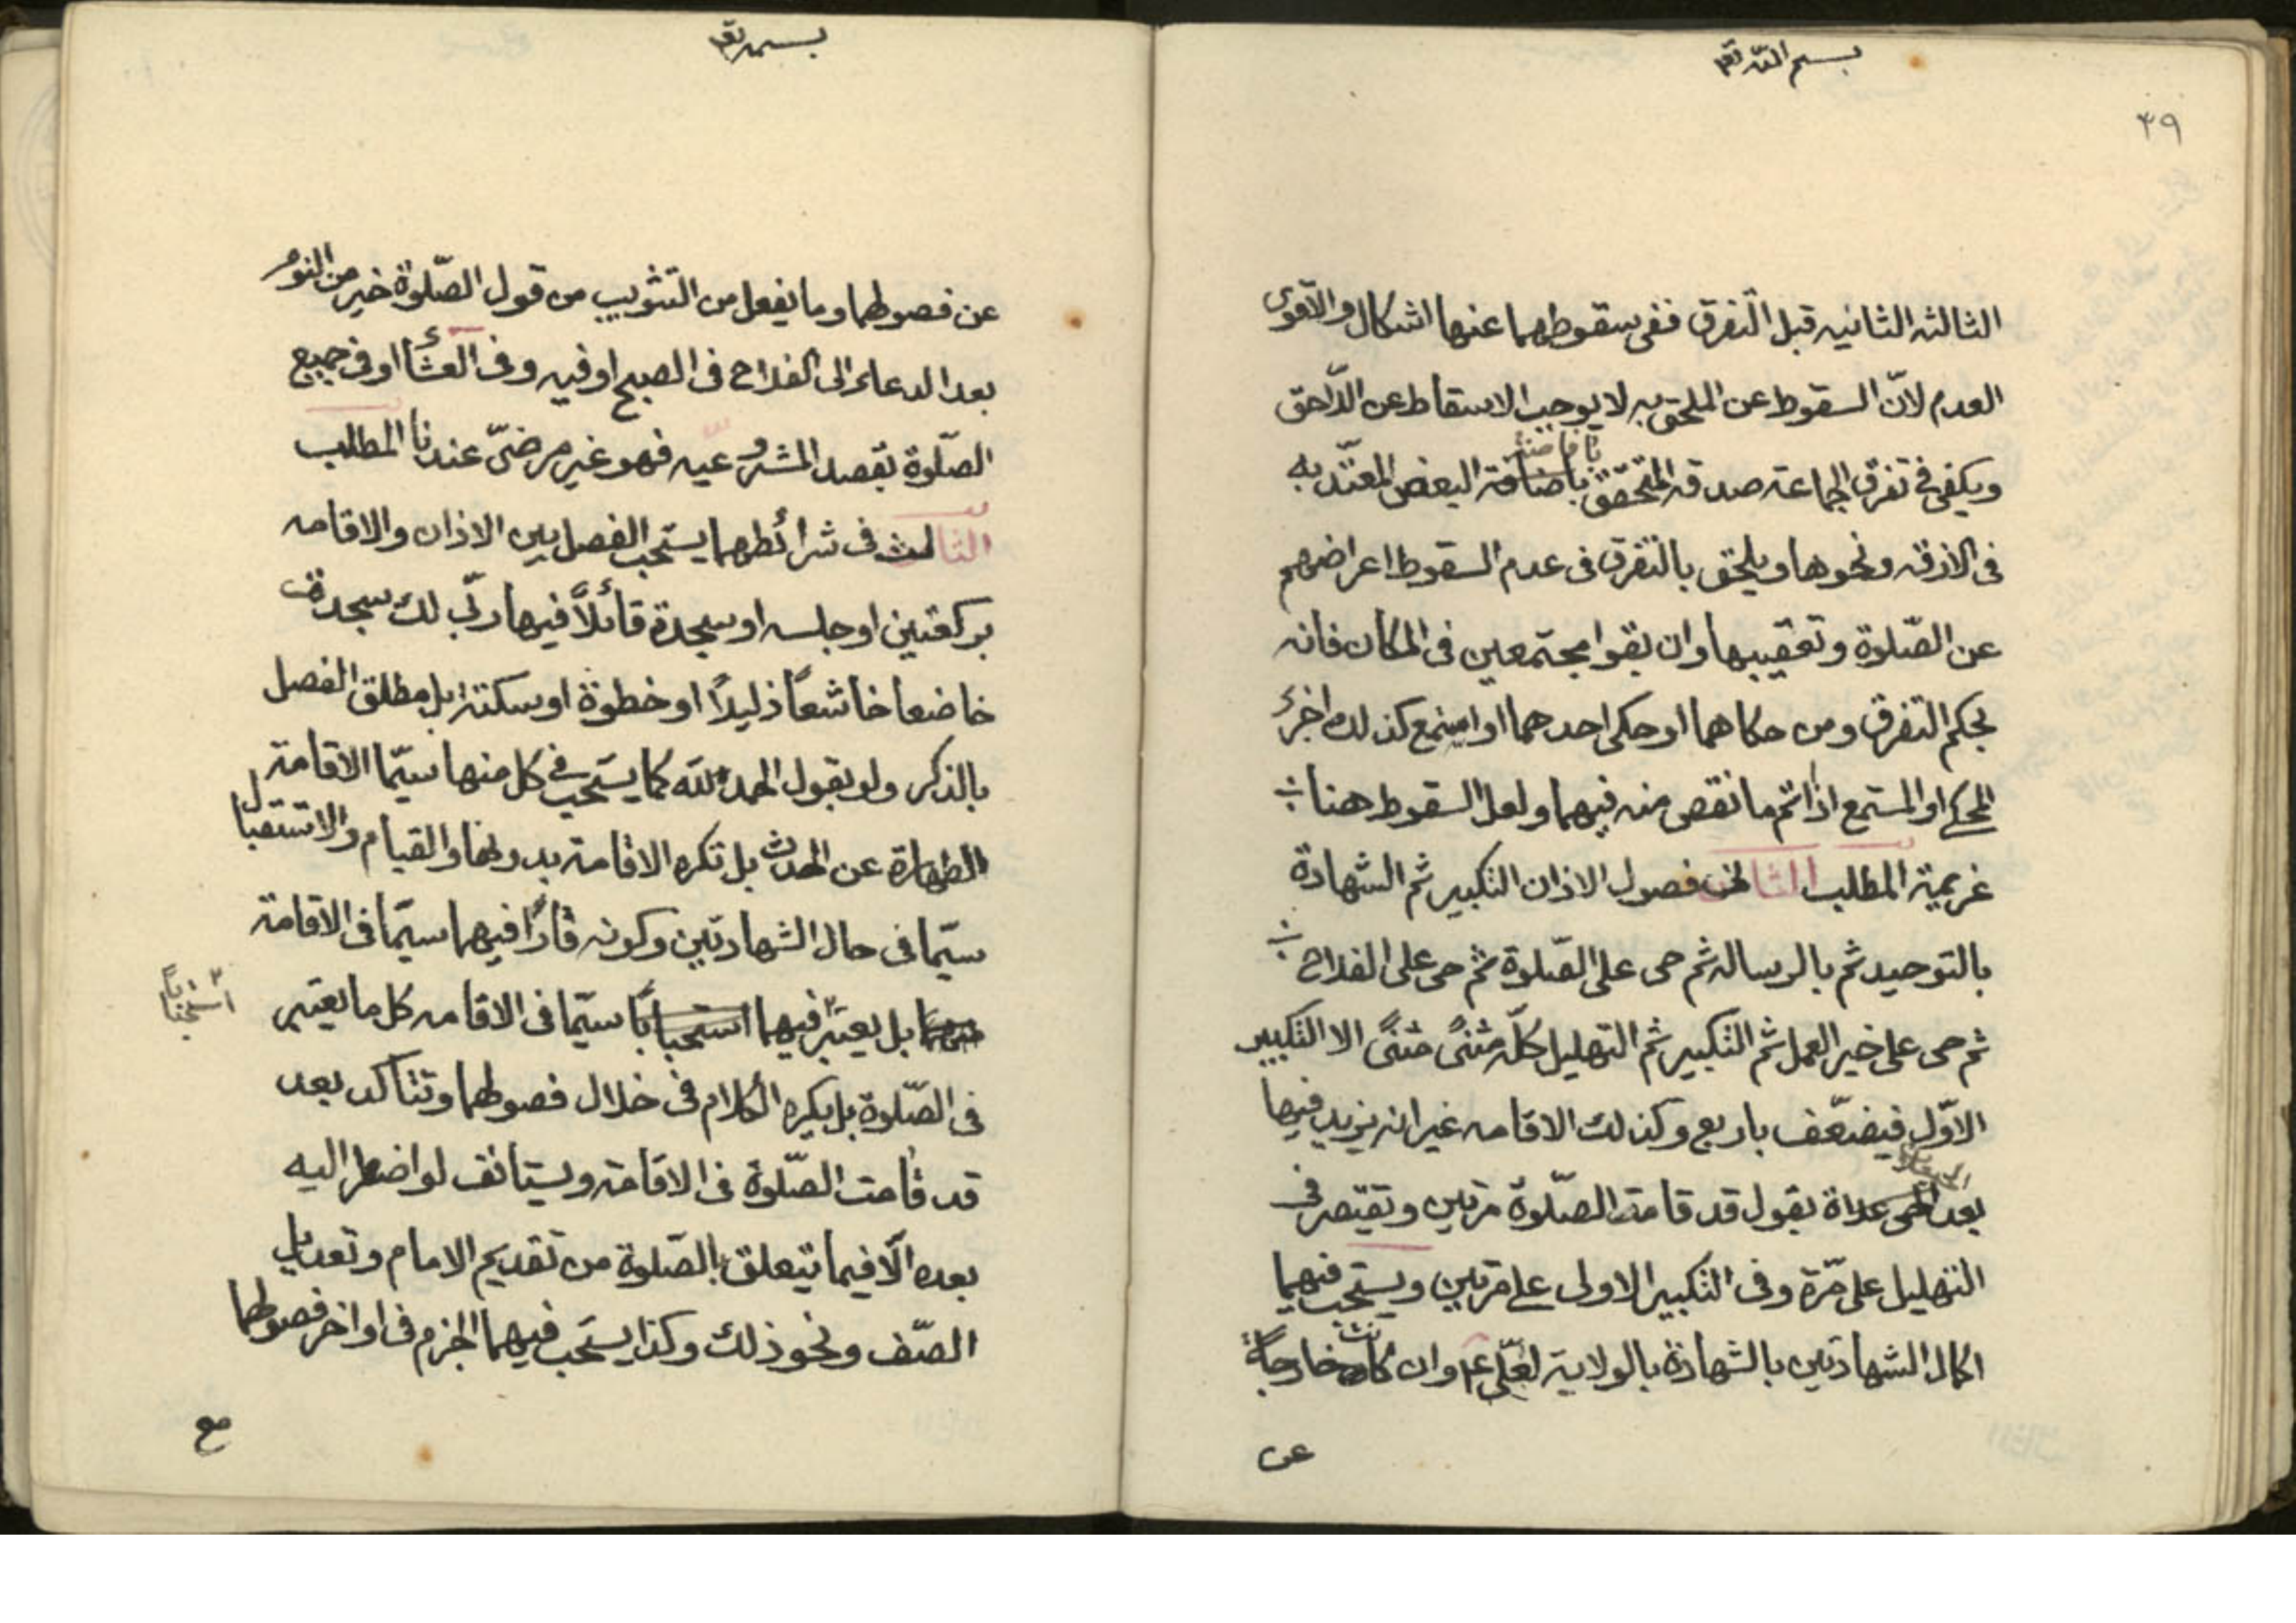 بسم الله تعـ
٣٩
الثالثه الثانيه قبل التفرق ففى سقوطهما عنها اشكال والاقوى
العدم لانّ السقوط عن الملحق به لا يوجب الاسقاط عن اللّاحق
ويكفى فى تفرق الجماعة صدقه المتحقق باضافة البعض المعتّد به
فى الازقه ونحوها ويلحق بالتفرق فى عدم السقوط اعراضهم
عن الصّلوة وتعقيبها وان بقوا مجتمعين فى المكان فانه
بحكم التفرق ومن حكاهما او حكى احدهما او استمع كذلك اجزئه
المحكى او المستمع اذا تم ما نقص منه فيهما ولعل السقوط هنا
عزيمة المطلب الثانى فصول الاذان التكبير ثم الشهادة
بالتوحيد ثم بالرساله ثم حى على الصّلوة ثم حى على الفلاح
ثم حى على خير العمل ثم التكبير ثم التهليل كلّه مثنًى مثنًى الا التكبير
الاوّل فيضعّف باربع وكذلك الاقامه غير انه يزيد فيها
بعد يقول قد قامت الصّلوة مرتين وتقتصر فى
التهليل على مرّة وفى التكبير الاولى على مرتين ويستحب فيهما
اكمال الشهادتين بالشهادة بالولاية لعلّى ع وان كانت خارجةً
عن
بسمه تعـ
عن فصولهما وما يفعل من التثويب من قول الصّلوة خير من النوم
بعد الدعاء الى الفلاح فى الصبح او فيه وفى العشأ او فى جميع
الصّلوة بقصد المشروعيه فهو غير مرضىّ عندنا المطلب
الثالث فى شرائطهما يستحب الفصل بين الاذان والاقامه
بركعتين او جلسه او سجدة قائلاً فيها ربّ لك سجدت
خاضعا خاشعاً ذليلاً او خطوة او سكتة بل مطلق الفصل
بالذكر ولو بقول الحمد لله كما يستحب فى كل منها سيّما الاقامة
الطهارة عن الحدث بل تكره الاقامة بدونها والقيام والاستقبال
سيّما فى حال الشهادتين وكونه قارًا فيهما سيّما فى الاقامة
بل يعتبر فيهما استحباباً سيّما فى الاقامه كل ما يعتبر
استحباباً
فى الصّلوة بل يكره الكلام فى خلال فصولهما وتتاكد بعد
قد قامت الصّلوة فى الاقامة ويستانف لو اضطر اليه
بعده الّا فيما يتعلق بالصّلوة من تقديم الامام وتعديل
الصّف ونحو ذلك وكذا يستحب فيهما الجزم فى اواخر فصولهما
مع